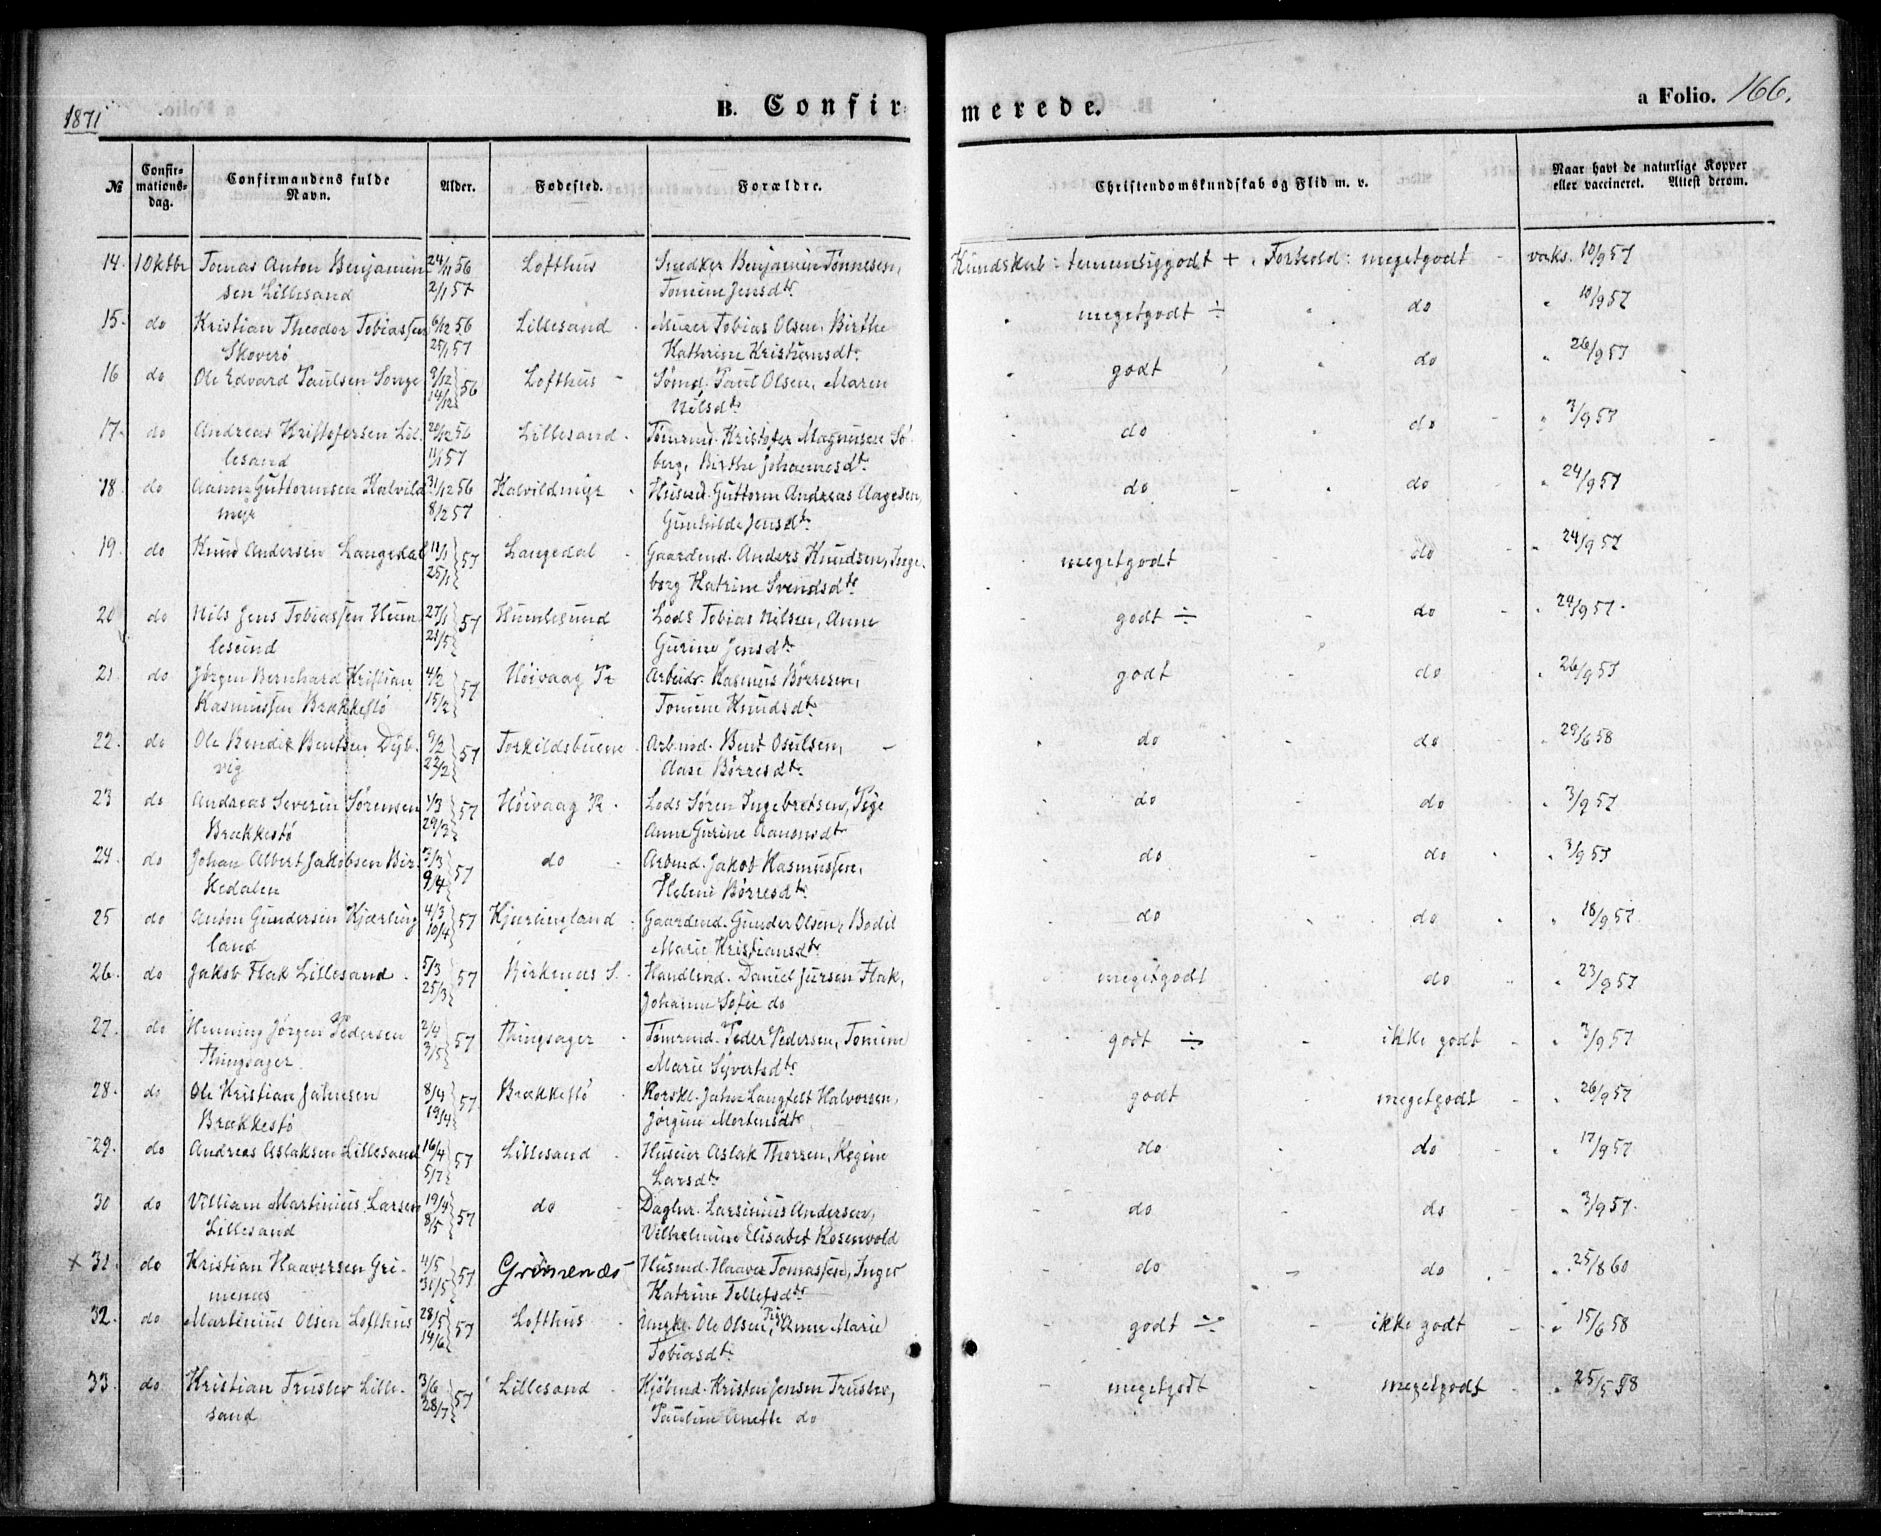 1871
B. Confirmerede.
a Folio. 166.
№ Confirmationsdag. Confirmandens fulde Navn. Alder. Fødested. Forældre. Christendomskundskab og Flid m. v. Naar havt de naturlige Kopper eller vaccineret. Attest derom.
14. 1 Oktbr Tomas Anton Benjamin 24/11 56 Lofthus Snedker Benjamin Tønnesen, Kundskab: temmeliggodt + . Forhold: megetgodt - vaks. 10/9 57
sen Lillesand 2/1 57 Tomine Jensdtr.
15. do Kristian Theodor Tobiassen 6/12 56 Lillesand - Murer Tobias Olsen, Birthe megetgodt ÷ " do " 10/9 57
Skoverø 25/1 57 Kathrine Kristiansdtr.
16 do Ole Edvard Paulsen Songe 9/12 56 Lofthus - Sømd. Paul Olsen, Maren godt " do " 26/9 57
14/12 Nilsdtr
17. do Andreas Kristofersen Lil- 20/12 56 Lillesand. Tømmd. Kristofer Magnusen Sø- do do " 3/9 57
lesand 11/1 57 berg, Birthe Johannesdtr.
18. do Aanon Guttormsen Kalvild 31/12 56 Kalvildmyr Husmd. Guttorm Andreas Aagesen, do - do " 24/9 57
myr 8/2 57 Gunhilde Jensdtr.
19. do Knud Andersen Langedal 11/1 57 Langedal Gaardmd. Anders Knudsen, Inge- megetgodt do " 24/9 57
25/1 borg Katrine Svendsdtr
20 do Nils Jens Tobiassen Hum 27/1 57 Humlesund Lods Tobias Nilsen, Anne godt ÷ do " 24/9 57.
lesund 21/5 Gurine Jensdtr.
21 do Jørgen Bernhard Kristian 4/2 57 Høivaag Pr Arbeidr. Rasmus Børresen, godt do " 26/9 57
Rasmussen Brækkestø 15/2 Tomine Knudsdtr.
22. do Ole Bendix Bentsen Dyb- 9/2 57 Torkildsbuene Arb.md. Bent Osulsen, do do " 29/6 58
vig 22/2 Aase Børresdtr.
23 do Andreas Severin Sørensen 1/3 57 Høivaag Pr. Lods Søren Ingebretsen, Pige do - do " 3/9 57
Brækkestø 29/3 Anne Gurine Aanonsdtr
24. do Johan Albert Jakobsen Bir- 3/3 57 do Arbmd. Jakob Rasmussen, do - do " 3/9 57
kedalen 9/4 Helene Børresdtr.
25 do Anton Gundersen Kjærling 4/3 57 Kjærlingland Gaardmd. Gunder Olsen, Bodil do do " 18/9 57
land 10/4 Marie Kristiansdtr.
26. do Jakob Flak Lillesand 5/3 57 Birkenæs S. Handlsmd. Daniel Jursen Flak, megetgodt do " 23/9 57
25/3 Johanne Sofie do
27. do Henning Jørgen Pedersen 2/4 57 Thingsager Tømmd. Peder Pedersen, Tomine godt ÷ - ikke godt - " 3/9 57
Thingsager. 3/5 Marie Syvertsdtr
28. do Ole Kristian Jahnsen 8/4 57 Brækkestø Jahn Langfelt Halvorsen, godt megetgodt - " 26/9 57
Brækkestø 19/4 Jørgine Mortensdtr
29. do Andreas Aslaksen Lillesand 16/4 57 Lillesand Huseier Aslak Thorsen, Regine do - do - " 17/9 57
5/7 Larsdtr.
30 do Villiam Martinius Larsen 19/4 57 do Daglnr. Larsinius Andersen, do - do " 3/9 57.
Lillesand 8/5 Vilhelmine Elisabet Rosenvold
× 31. do Kristian Haaversen Gri- 4/5 57 Grimenæs Husmd. Haaver Tomassen, Inger do - do - " 25/8 60
menæs 30/5 Katrine Tellefsdtr
32. do Martinius Olsen Lofthus 28/5 57 Lofthus Ungkl. Ole Olsen, Pige Anne Marie godt ÷ - ikke godt - " 15/6 58
14/6 Tobiasdtr.
33. do Kristian Truslev Lille- 3/6 57 Lillesand Kjøbmd. Kristen Jensen Truslev, megetgodt - megetgodt - " 25/5 58
sand 28/7 Pauline Anette do